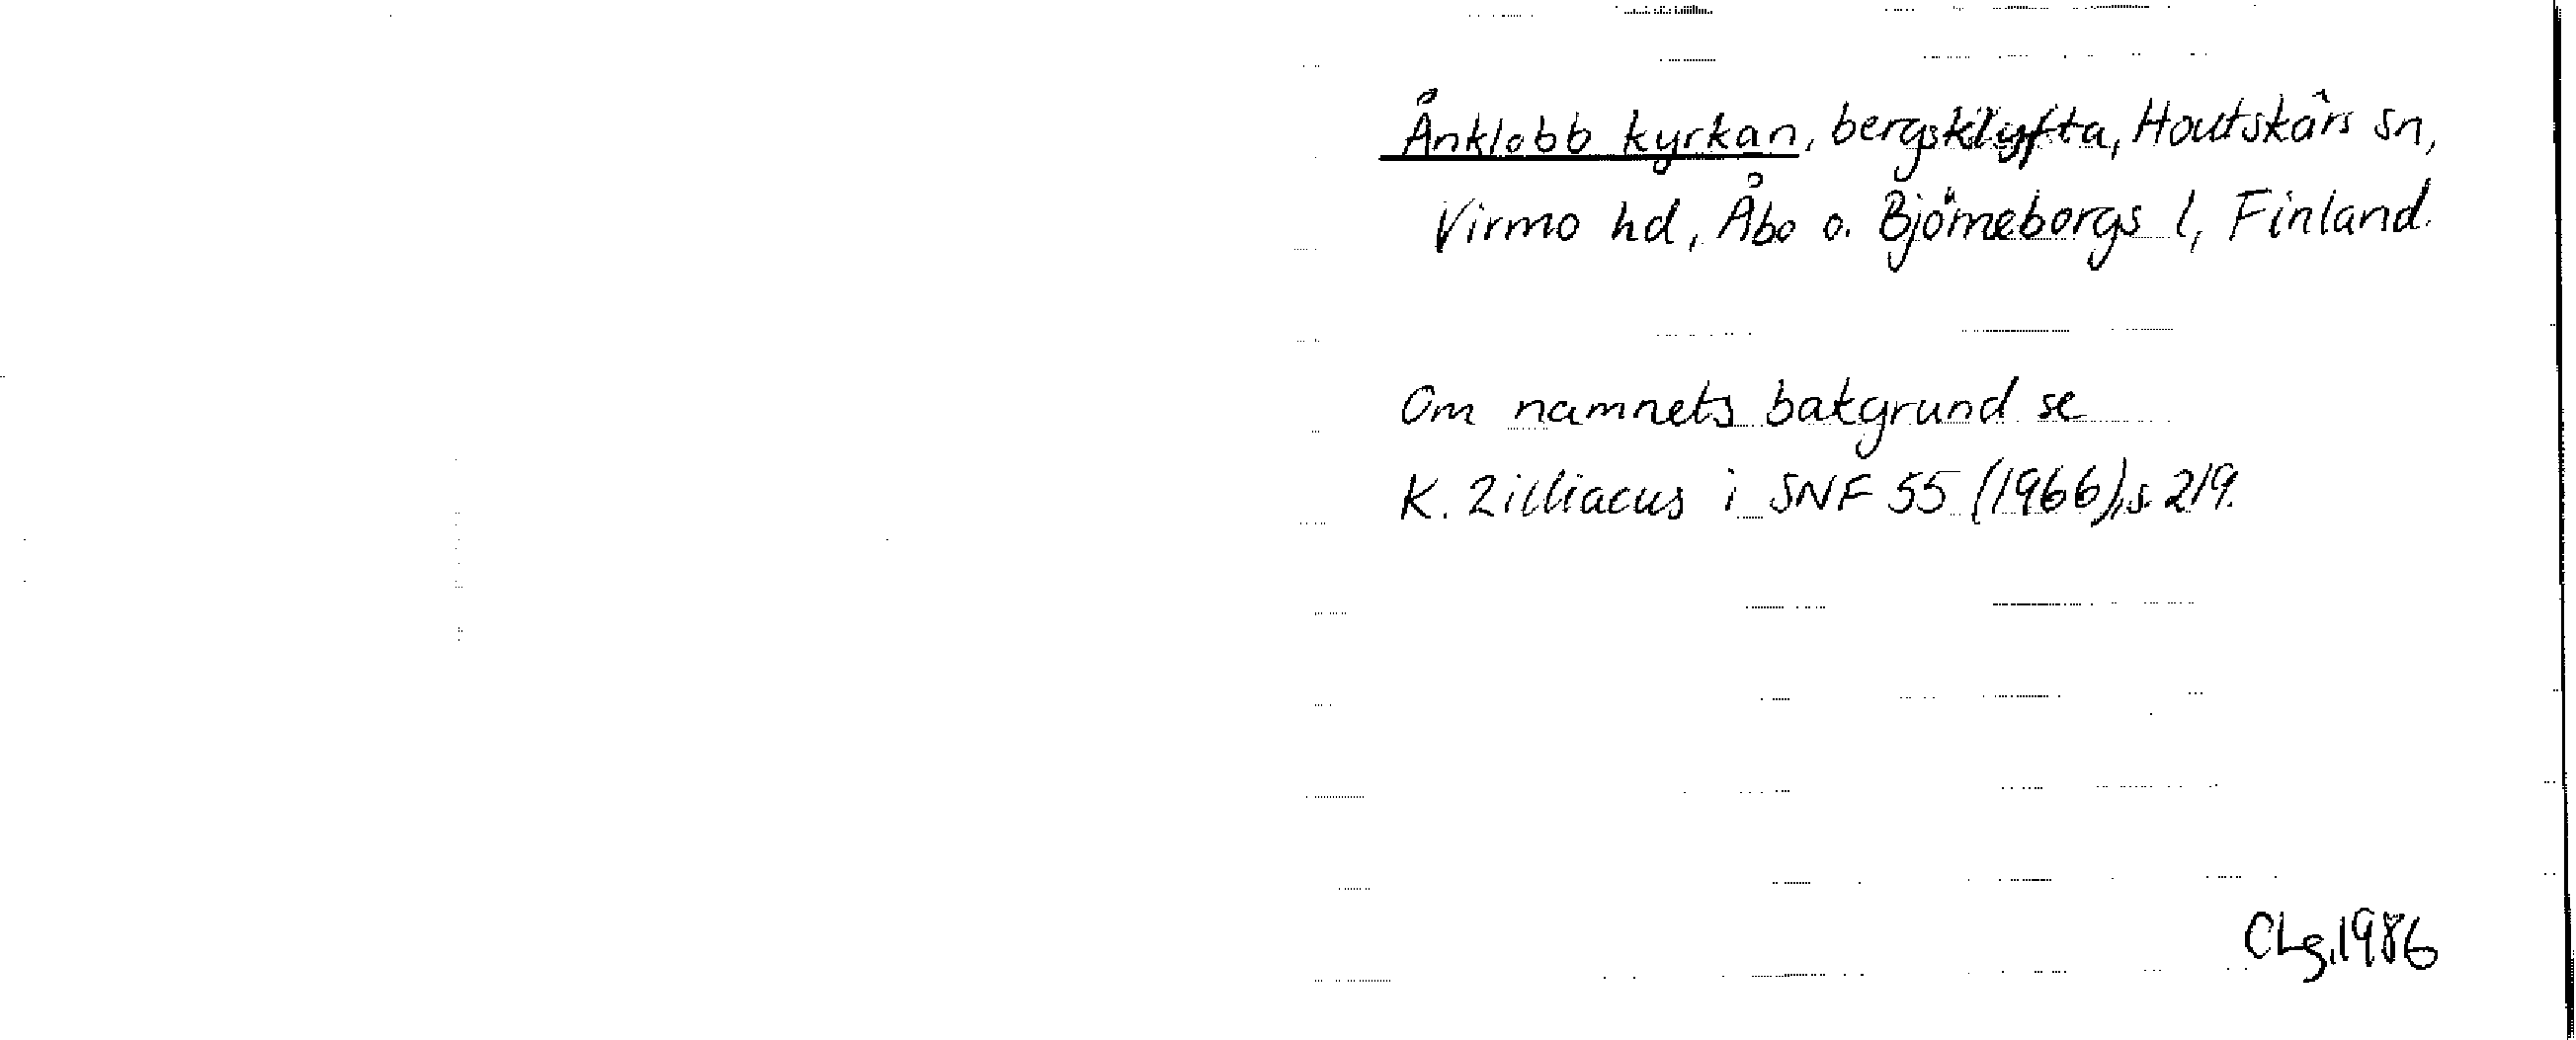 Ånklobb kyrkan, bergsklyfta, Houtskärs sn,
Virmo hd, Åbo o. Björneborgs l, Finland.
Om namnets bakgrund se
K. Zilliacus i SNF 55 (1966), s. 219.
CLg, 1986